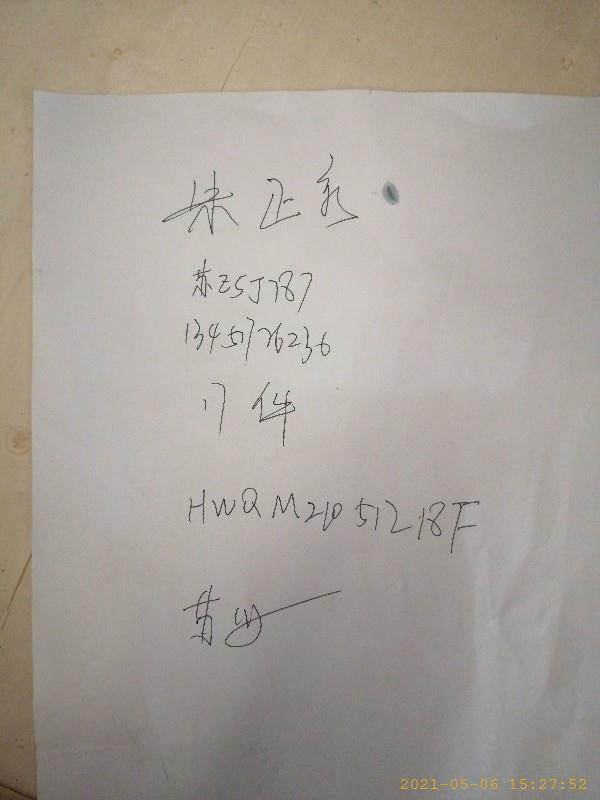 朱正永
苏E5J787
13451726236
17件
HWQM21051218F
2021-05-06 15:27:52